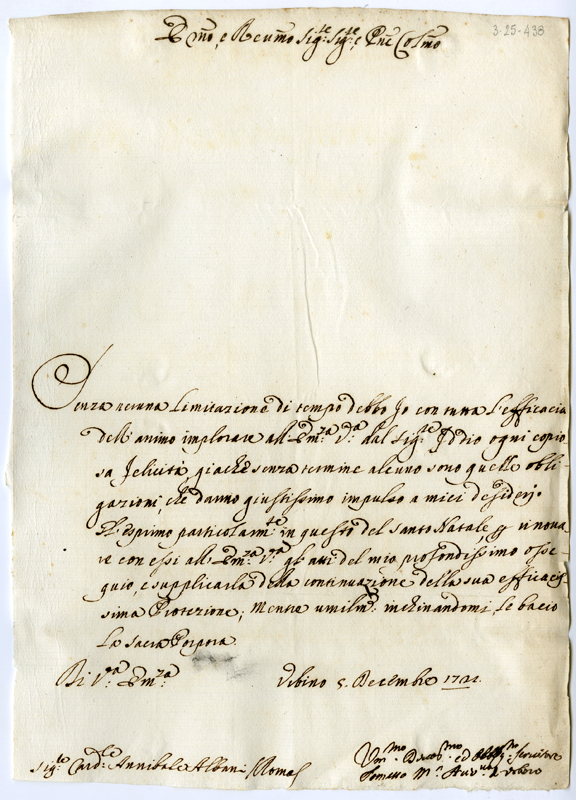 3-25-438
Em͞o, e Reu͞mo Sig:re Sig:re, e Prōe Col͞mo
Senza neruna Limitazione di tempo debbo Jo con tutta l'efficacia
dell'animo implorare all'Em:za V:ra dal Sig:re Iddio ogni copio
sa felicità, giache senza termine alcuno sono quelle obli
gazioni, che danno giustissimo impulso a miei desiderj.
Gl'esprimo particolarm:te in questo del Santo Natale, e rinova
re con essi all'Em:za V:ra gl'atti del mio profondissimo osse
quio, e supplicarla della continuazione della sua efficacis
sima Protezione; Mentre umilm:te inchinandomi, le bacio
La Sacra Porpora.
Di V:ra Em:za
Urbino 5. Decembre 1721.
Sig:re Card:le Annibale Albani / Roma /
Um:mo Deuot:mo ed Obblig:mo Seruitore
Tomasso M:a